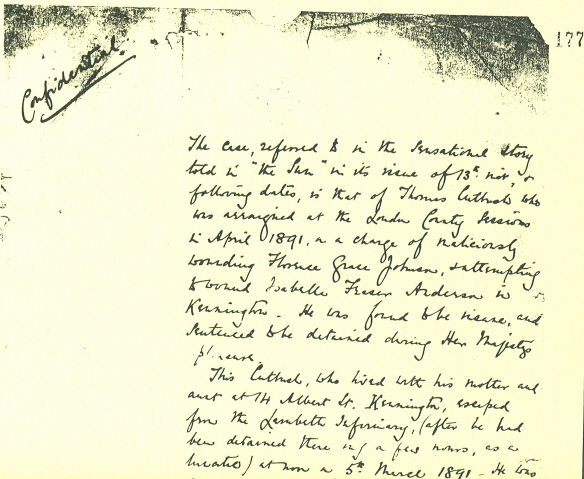 177
Confidential
The case, referred to in the sensational story
told in "the Sun" in its issue of 13th inst, &
following dates, is that of Thomas Cutbush who
was arraigned at the London County Sessions
in April 1891, on a charge of maliciously
wounding Florence Grace Johnson, & attempting
to wound Isabelle Fraser Anderson in
Kennington. He was found to be insane, and
sentenced to be detained during Her Majesty's
pleasure.
This Cutbush, who lived with his mother and
aunt at 14 Albert St. Kennington, escaped
from the Lambeth Infirmary, (after he had
been detained there only a few hours, as a
lunatic) at noon on 5th March 1891 - He was